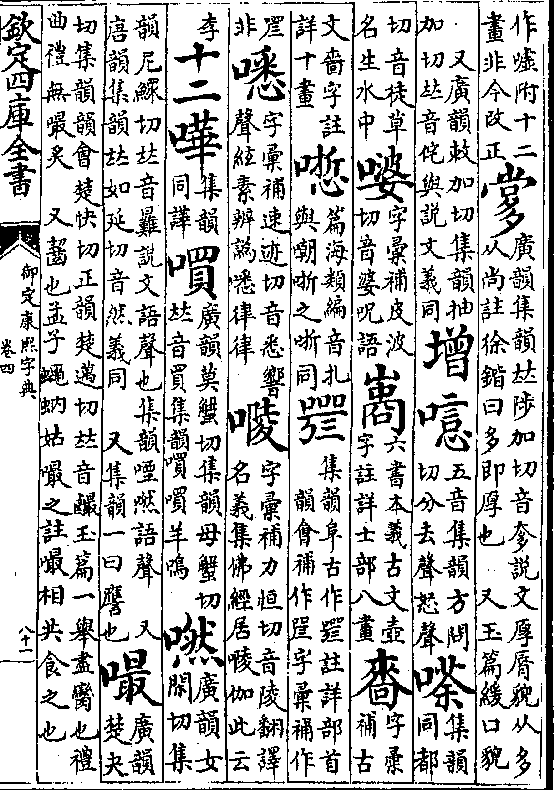 作噓附十二
畫非今改正
廣韻集韻𠀤陟加切音奓說文厚脣貌从多
从尚註徐鍇曰多即厚也 又玉篇緩口貌
又廣韻敕加切集韻抽
加切𠀤音侘與說文義同
增
噫
五音集韻方問
切分去聲怒聲
喍
集韻
同都
切音徒草
名生水中
字彙補皮波
切音婆呪語
六書本義古文壺
字註詳士部八畫
嗇
字彙
補古
文嗇字註
詳十畫
篇海類編音扎
與嘲哳之哳同
集韻阜古作𤾂註詳部首
韻會補作𤾂字彙補作
非
字彙補速迹切音悉響
聲絃素辨譌𠹤律律
字彙補力恒切音陵翻譯
名義集佛經居㖫伽此云
李
十二
嘩
集韻
同譁
嘪
廣韻莫蟹切集韻母蟹切
𠀤音買集韻嘪嘪羊鳴
嘫
廣韻女
閑切集
韻尼鰥切𠀤音難說文語聲也集韻嘫嘫語聲 又
唐韻集韻𠀤如延切音然義同 又集韻一曰譍也
嘬
廣韻
楚夬
切集韻韻會楚快切正韻楚邁切𠀤音䵵玉篇一舉盡臠也禮
曲禮無嘬炙 又齧也孟子蠅蚋姑嘬之註嘬相共食之也
欽定四庫全書
御定康熙字典
卷四
八十一